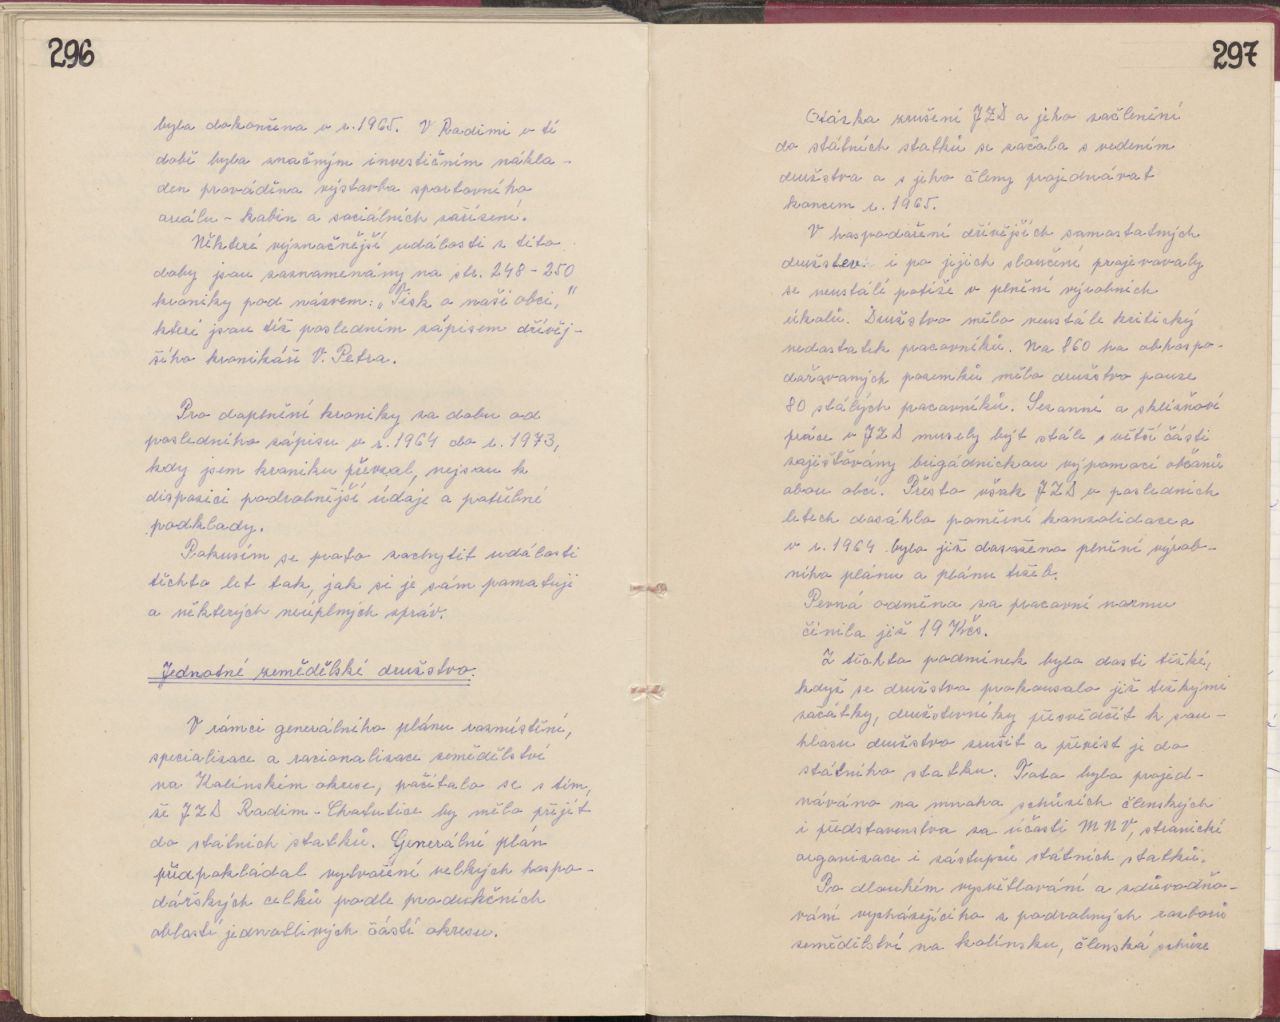 296
byla dokončena v r. 1965. V Radimi v té
době byla značným investičním nákla-
dem prováděna výstavba sportovního
areálu - kabin a sociálních zařízení.
Některé význačnější události z této
doby jsou zaznamenány na str. 248 - 250
kroniky pod názvem: „Tisk o naší obci,"
které jsou též posledním zápisem dřívěj-
šího kronikáře V. Petra.
Pro doplnění kroniky za dobu od
posledního zápisu v r. 1964 do r. 1973,
kdy jsem kroniku převzal, nejsou k
disposici podrobnější údaje a potřebné
podklady.
Pokusím se proto zachytit události
těchto let tak, jak si je sám pamatuji
a některých neúplných zpráv.
Jednotné zemědělské družstvo.
V rámci generálního plánu rozmístění,
specialisace a racionalisace zemědělství
na Kolínském okrese, počítalo se s tím,
že JZD Radim - Chotutice by mělo přejít
do státních statků. Generální plán
předpokládal vytvoření velkých hospo-
dářských celků podle produkčních
oblastí jednotlivých částí okresu.
297
Otázka zrušení JZD a jeho začlenění
do státních statků se začala s vedením
družstva a s jeho členy projednávat
koncem r. 1965.
V hospodaření dřívějších samostatných
družstev i po jejich sloučení projevovaly
se neustálé potíže v plnění výrobních
úkolů. Družstvo mělo neustále kritický
nedostatek pracovníků. Na 860 ha obhospo-
dařovaných pozemků mělo družstvo pouze
80 stálých pracovníků. Sezonní a sklizňové
práce v JZD musely být stále z větší části
zajišťovány brigádnickou výpomocí občanů
obou obcí. Přesto však JZD v posledních
letech dosáhlo poměrné konzolidace a
v r. 1964 bylo již dosaženo plnění výrob-
ního plánu a plánu tržeb.
Pevná odměna za pracovní normu
činila již 19 Kčs.
Z těchto podmínek bylo dosti těžké,
když se družstvo prokousalo již těžkými
začátky, družstevníky přesvědčit k sou-
hlasu družstvo zrušit a převést je do
státního statku. Toto bylo projed-
náváno na mnoha schůzích členských
i představenstva za účasti MNV, stranické
organizace i zástupců státních statků.
Po dlouhém vysvětlování a zdůvodňo-
vání vycházejícího z podrobných rozborů
zemědělství na kolínsku, členská schůze